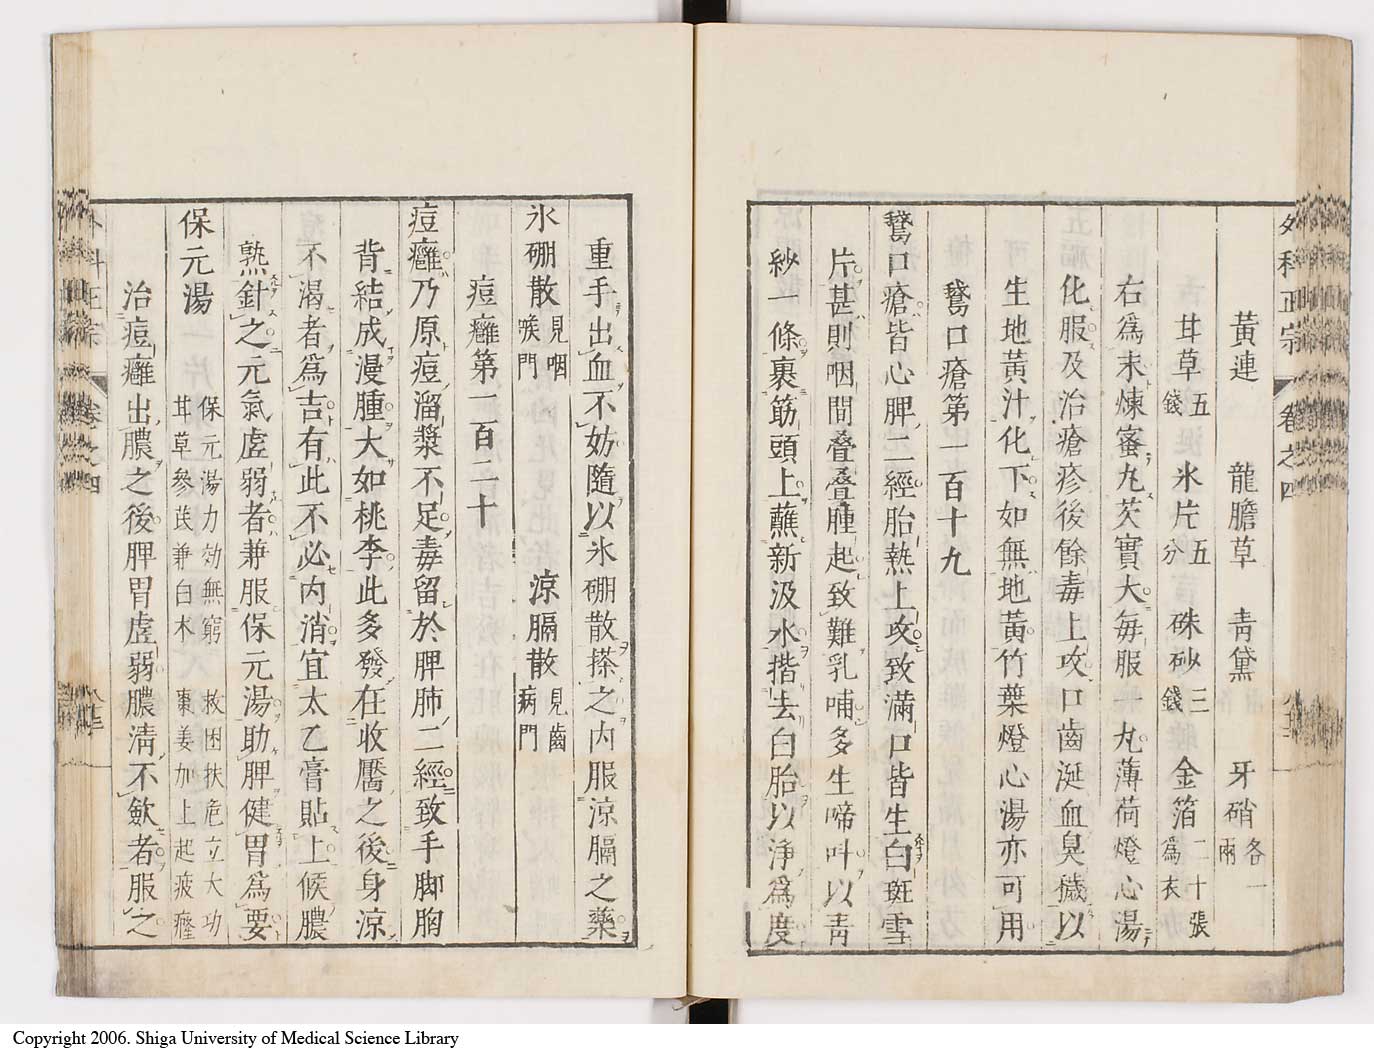 外科正宗 卷之四
黃連 龍膽草 青黛 牙硝各一兩
甘草五錢 氷片五分 硃砂三錢 金箔二十張爲衣
右爲末煉蜜丸芡實大每服一丸薄荷燈心湯
化服及治瘡疹後餘毒上攻口齒涎血臭穢以
生地黃汁化下如無地黃竹葉燈心湯亦可用
鵞口瘡第一百十九
鵞口瘡皆心脾二經胎熱上攻致滿口皆生白斑雪
片甚則咽間疊疊腫起致難乳哺多生啼叫以青
紗一條裹筋頭上蘸新汲水揩去白胎以淨爲度
重手出血不妨隨以氷硼散搽之内服涼膈之藥
氷硼散見咽喉門 涼膈散見齒病門
痘癰第一百二十
痘癰乃原痘溜漿不足毒留於脾肺二經致手脚胸
背結成漫腫大如桃李此多發在收靨之後身涼
不渴者爲吉有此不必内消宜太乙膏貼上候膿
熟針之元氣虛弱者兼服保元湯助脾健胃爲要
保元湯 保元湯力効無窮 救困扶危立大功
甘草參芪兼白朮 棗姜加上起疲癃
治痘癰出膿之後脾胃虛弱膿清不歛者服之
卷之四
Copyright 2006. Shiga University of Medical Science Library